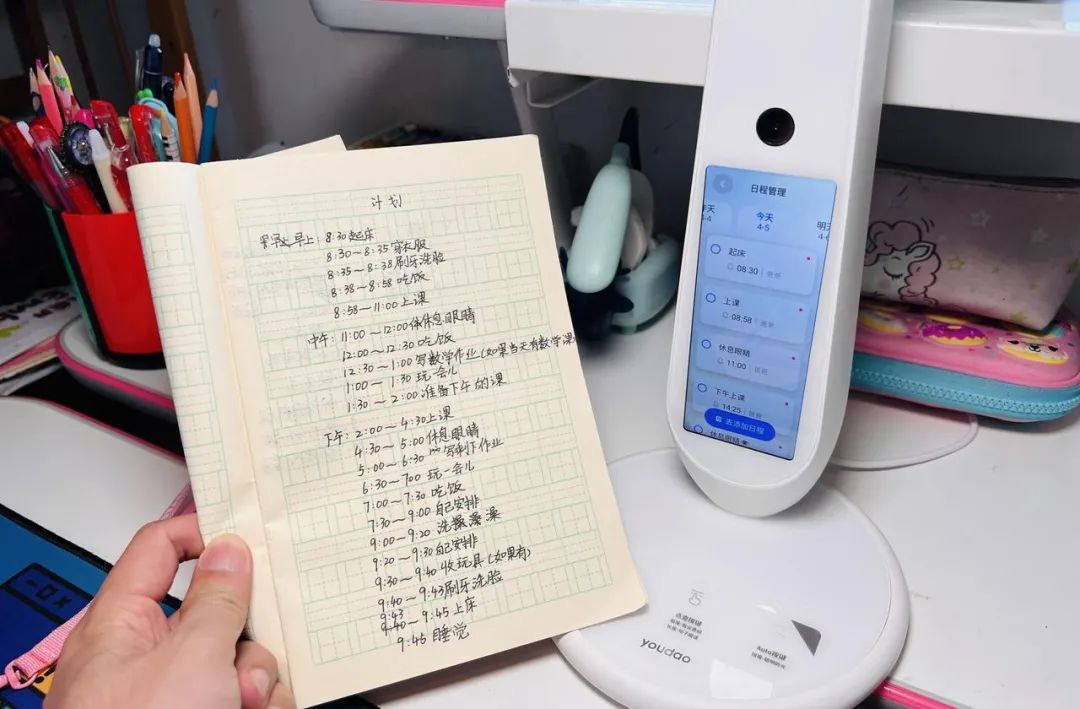 计划
早上：8:30起床
8:30～8:35穿衣服
8:35～8:38刷牙洗脸
8:38～8:58吃饭
8:58～11:00上课
中午：11:00～12:00休息眼睛
12:00～12:30吃饭
12:30～1:00写数学作业(如果当天有数学课)
1:00～1:30玩一会儿
1:30～2:00准备下午的课
下午：2:00～4:30上课
4:30～5:00休息眼睛
5:00～6:30写剩下作业
6:30～700玩一会儿
7:00～7:30吃饭
7:30～9:00自己安排
9:00～9:20洗澡
9:20～9:30自己安排
9:30～9:40收玩具(如果有)
9:40～9:43刷牙洗脸
9:43～9:45上床
9:45睡觉
日程管理
昨天 今天 明天
4-4 4-5 4-6
起床
08:30 爸爸
上课
08:58 爸爸
休息眼睛
11:00 爸爸
下午上课
14:25 爸爸
去添加日程
休息眼睛
点查按键
Auto按键
youdao